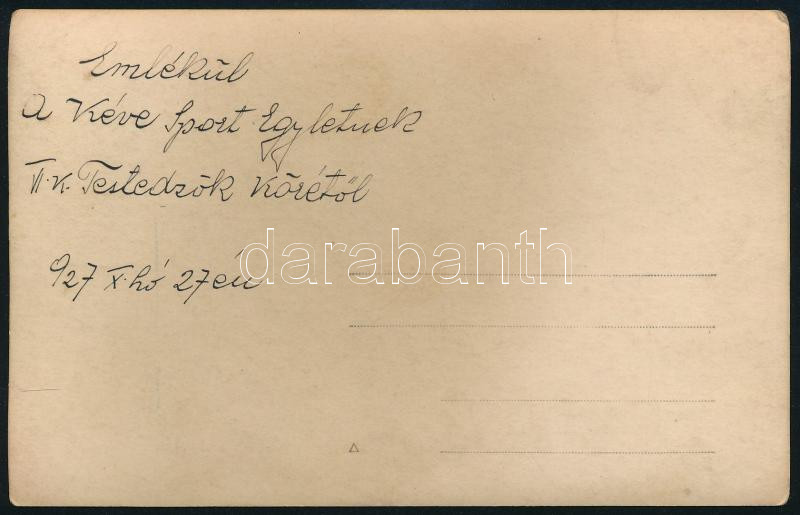 Emlékül
a Kéve Sport Egyletnek
VI. K. Testedzők Körétől
927 X. hó 27 én
darabanth